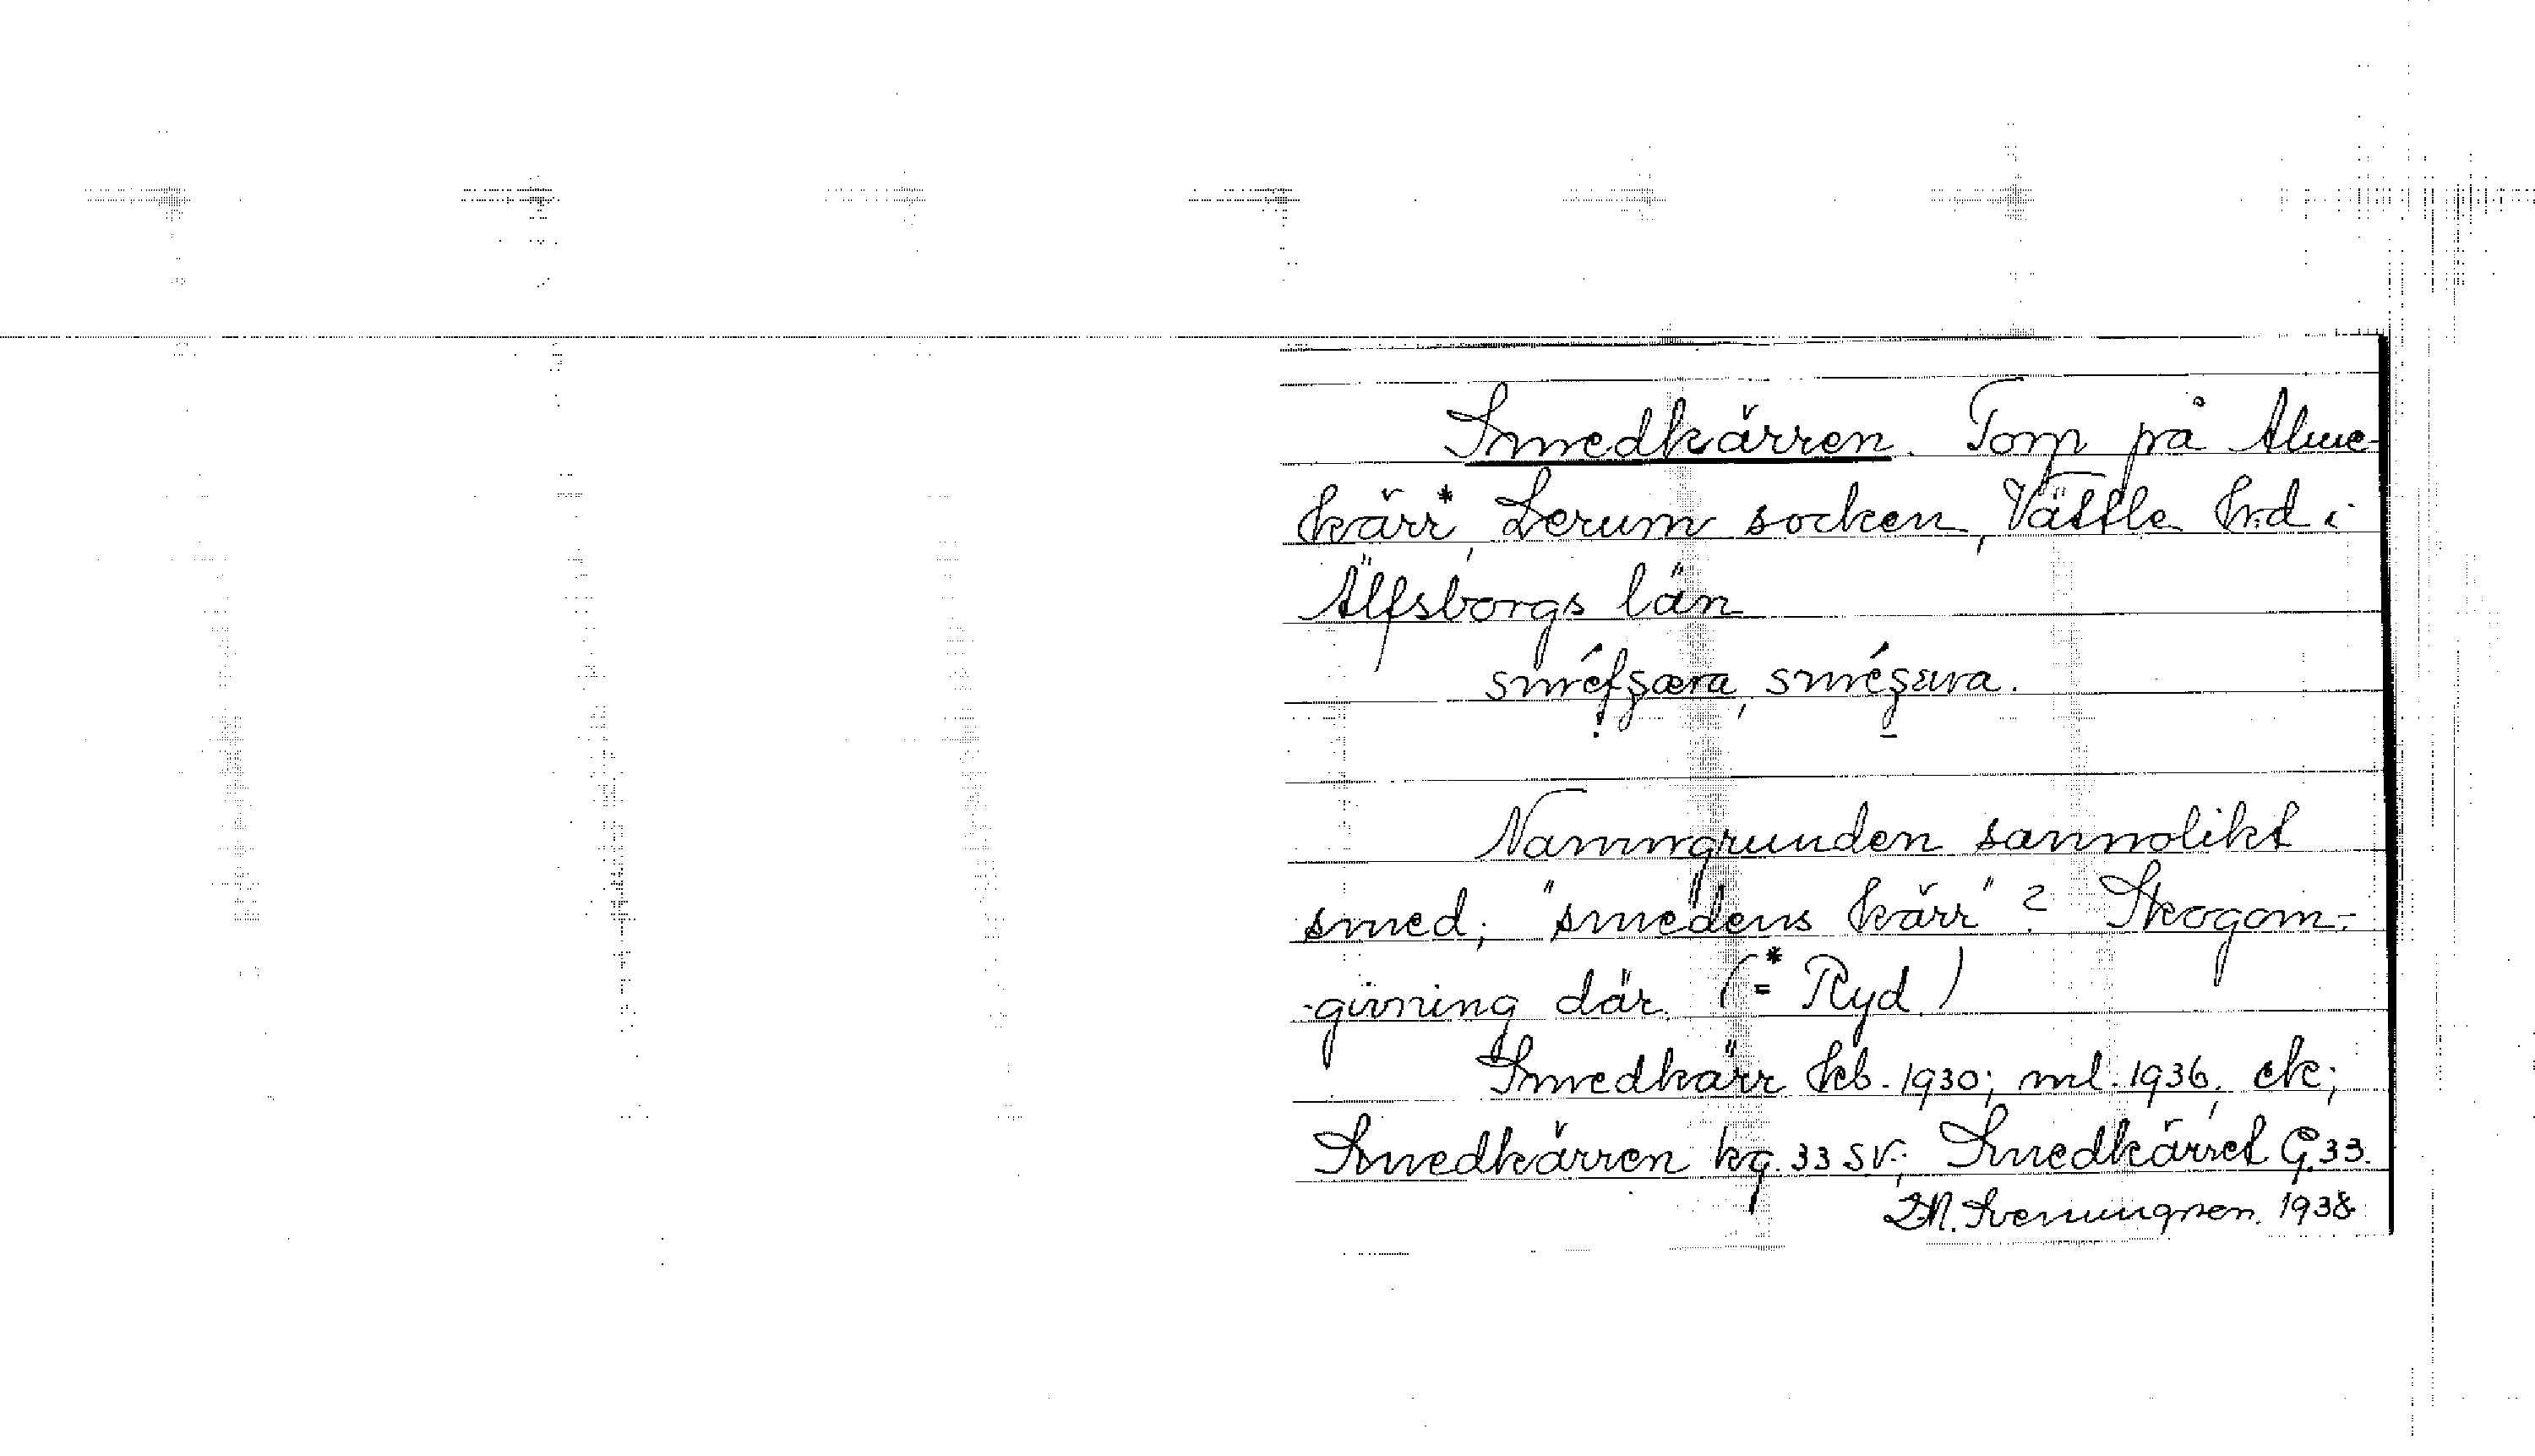 Smedkärren. Torp på Alme-
kärr*, Lerum socken, Vättle hrd i
Älfsborgs län
Namngrunden sannolikt
smed; "smedens kärr"? Skogom-
-givning där. (* = Ryd.)
Smedkärr kb. 1930; ml. 1936, ek;
Smedkärren kg. 33 SV.; Smedkärret G. 33.
Svenungsson. 1938